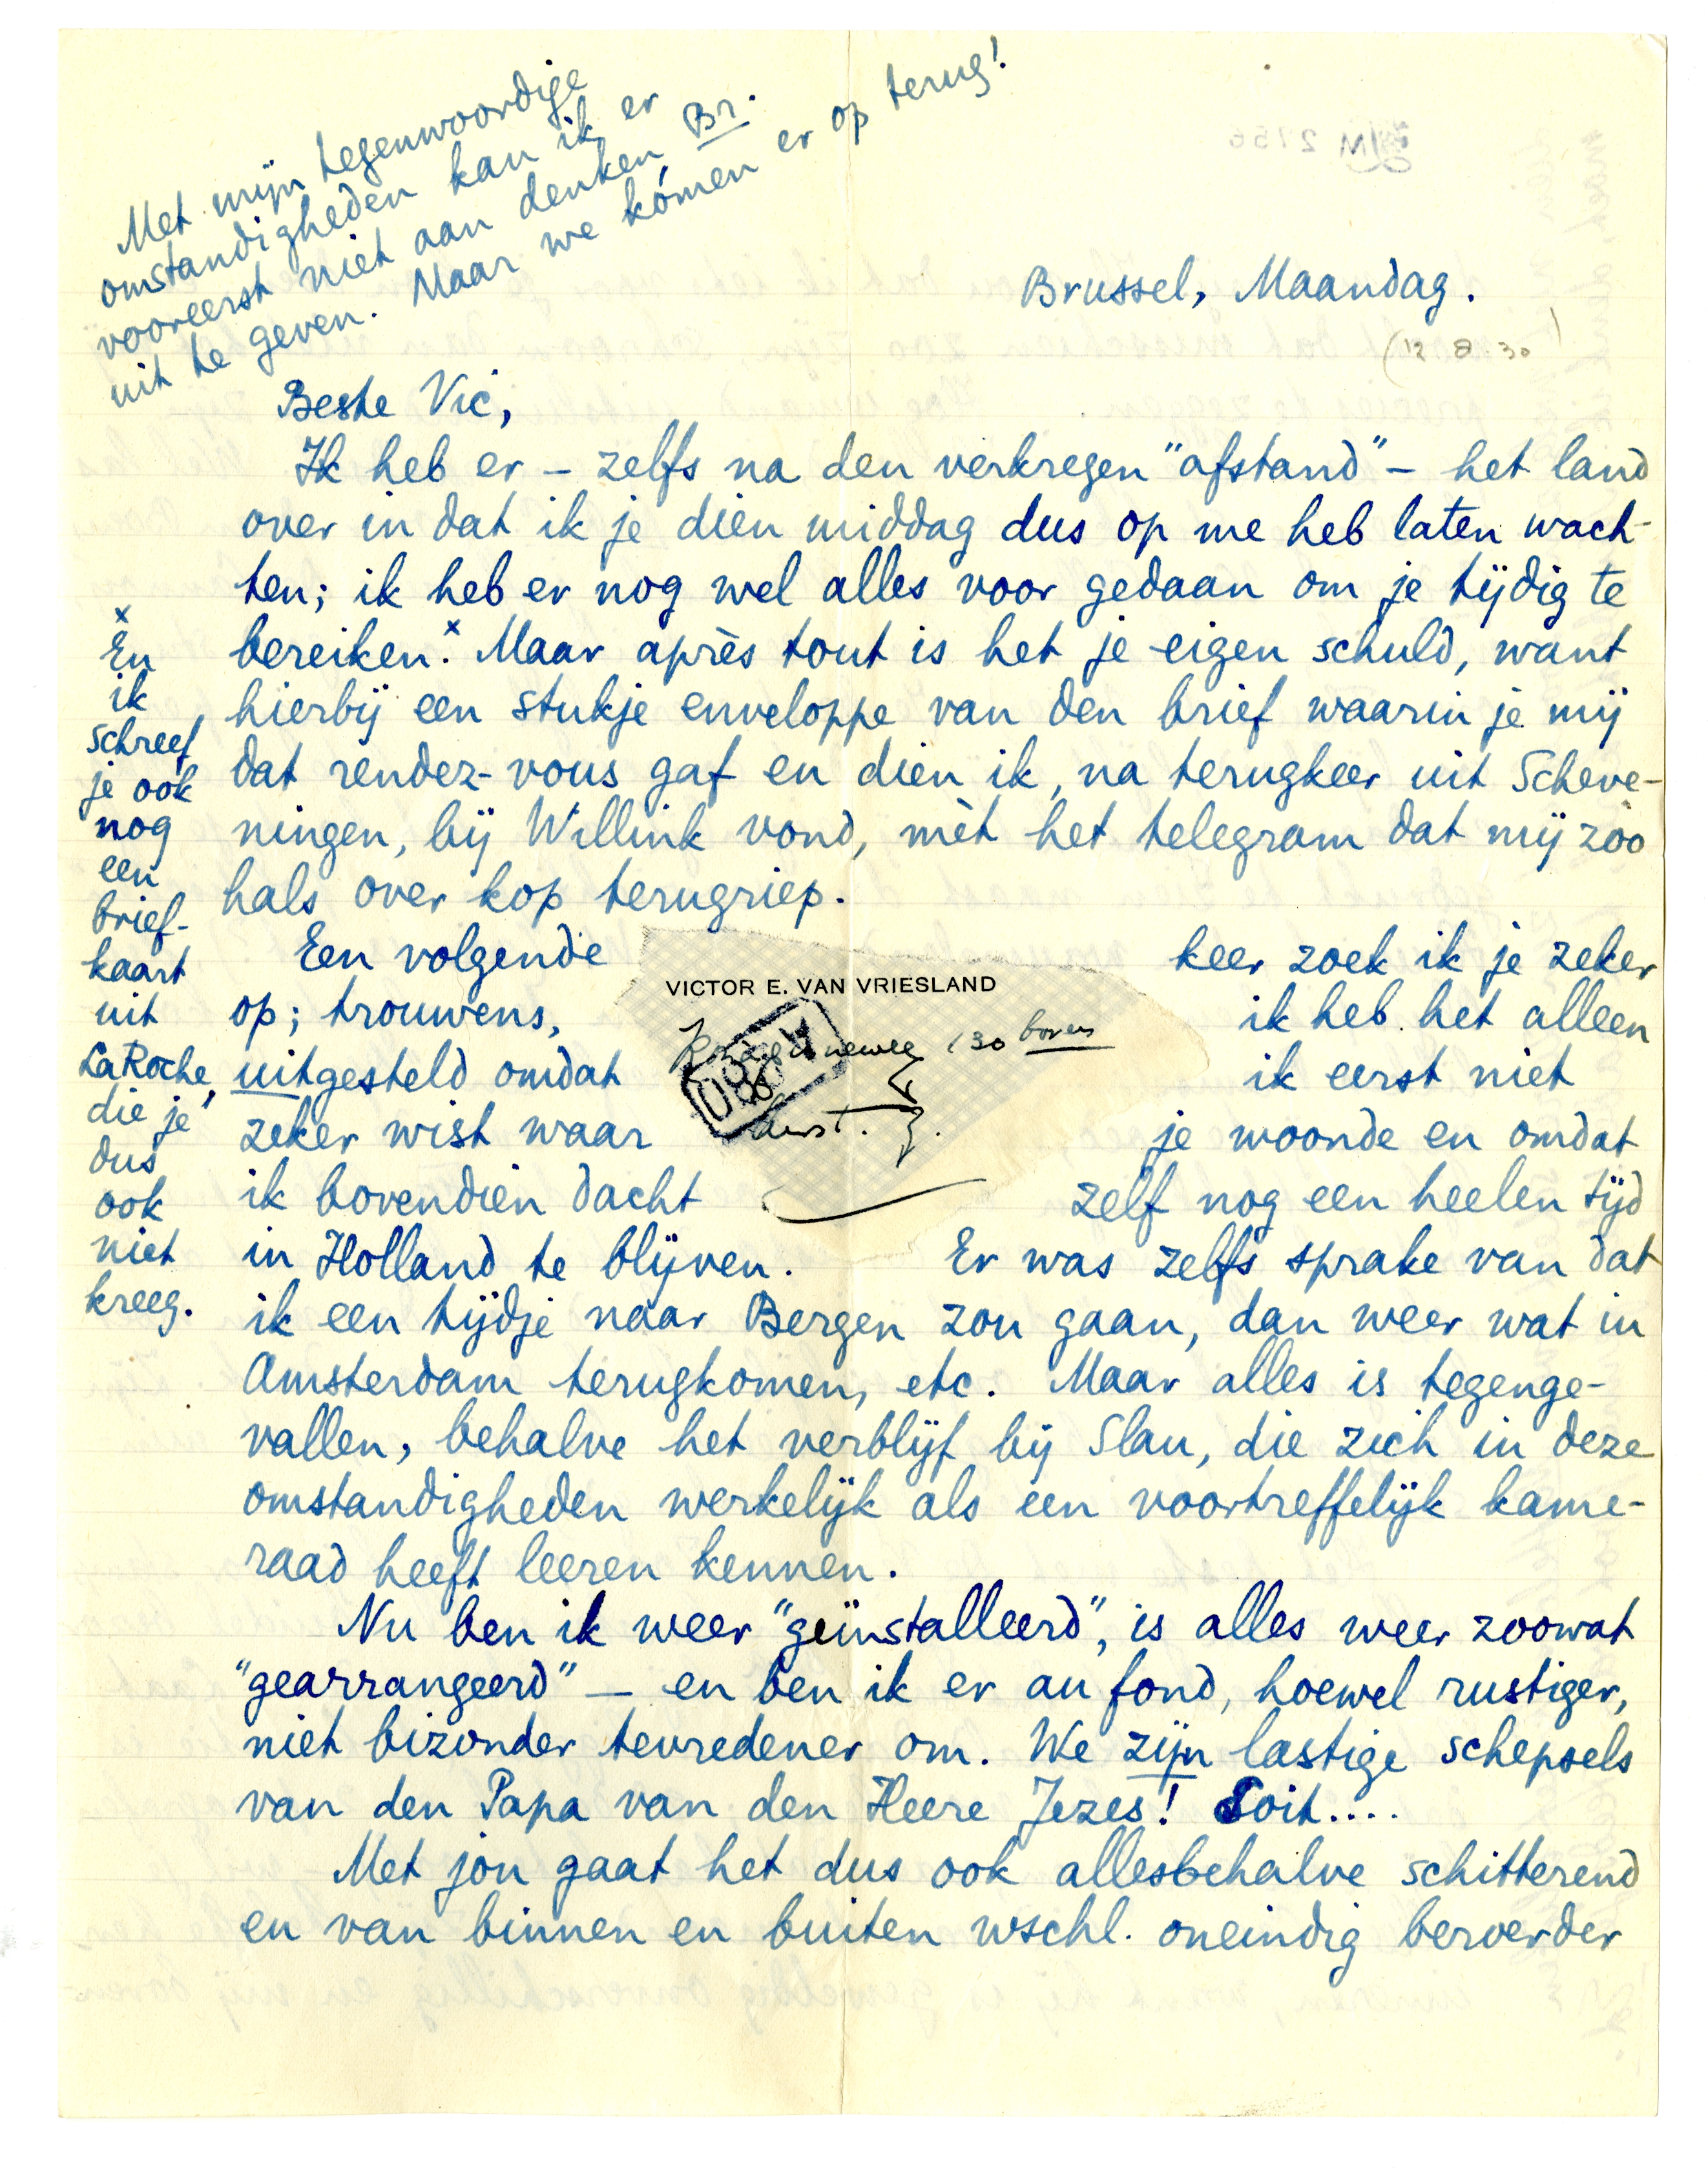 Met mijn tegenwoordige
omstandigheden kan ik er
vooreerst niet aan denken Br.
uit te geven. Maar we kómen er op terug!
Brussel, Maandag.
(12 8. 30)
Beste Vic,
Ik heb er – zelfs na den verkregen "afstand" – het land
over in dat ik je dien middag dus op me heb laten wach-
ten; ik heb er nog wel alles voor gedaan om je tijdig te
bereiken.x Maar après tout is het je eigen schuld, want
hierbij een stukje enveloppe van den brief waarin je mij
dat rendez-vous gaf en dien ik, na terugkeer uit Scheve-
ningen, bij Willink vond, mèt het telegram dat mij zoo
hals over kop terugriep.
Een volgende keer zoek ik je zeker
op; trouwens, ik heb het alleen
uitgesteld omdat ik eerst niet
zeker wist waar je woonde en omdat
ik bovendien dacht zelf nog een heelen tijd
in Holland te blijven. Er was zelfs sprake van dat
ik een tijdje naar Bergen zou gaan, dan weer wat in
Amsterdam terugkomen, etc. Maar alles is tegenge-
vallen, behalve het verblijf bij Slau, die zich in deze
omstandigheden werkelijk als een voortreffelijk kame-
raad heeft leeren kennen.
Nu ben ik weer "geïnstalleerd", is alles weer zoowat
"gearrangeerd" – en ben ik er au fond, hoewel rustiger,
niet bizonder tevredener om. We zijn lastige schepsels
van den Papa van den Heere Jezes! Soit....
Met jou gaat het dus ook allesbehalve schitterend
en van binnen en buiten wschl. oneindig beroerder
x
En
ik
schreef
je ook
nog
een
brief-
kaart
uit
LaRoche,
die je
dus
ook
niet
kreeg.
VICTOR E. VAN VRIESLAND
130 boven